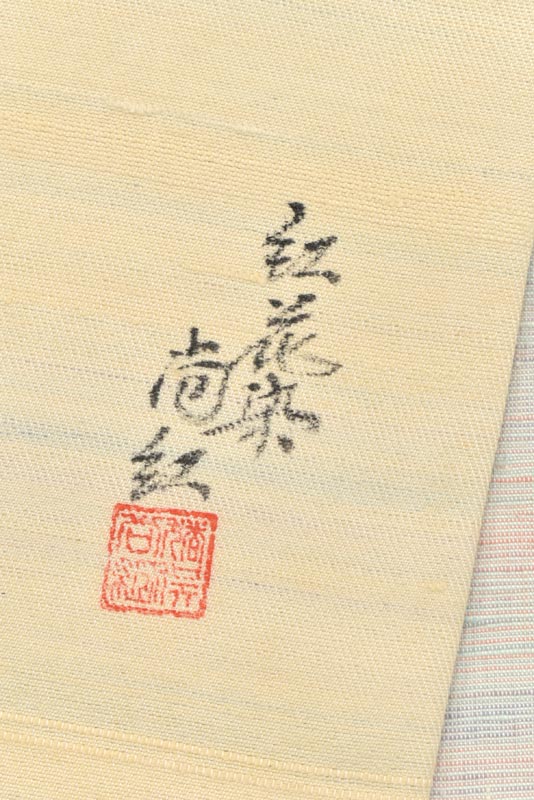 紅花染
尚紅